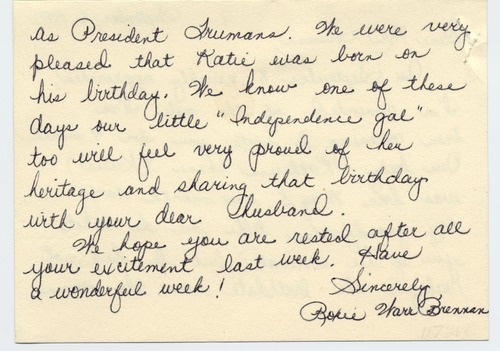 as President Trumans. We were very
pleased that Katie was born on
his birthday. We know one of these
days our little "Independence gal"
too will feel very proud of her
heritage and sharing that birthday
with your dear husband.
We hope you are rested after all
your excitement last week. Have
a wonderful week! Sincerely,
Warr Brennan